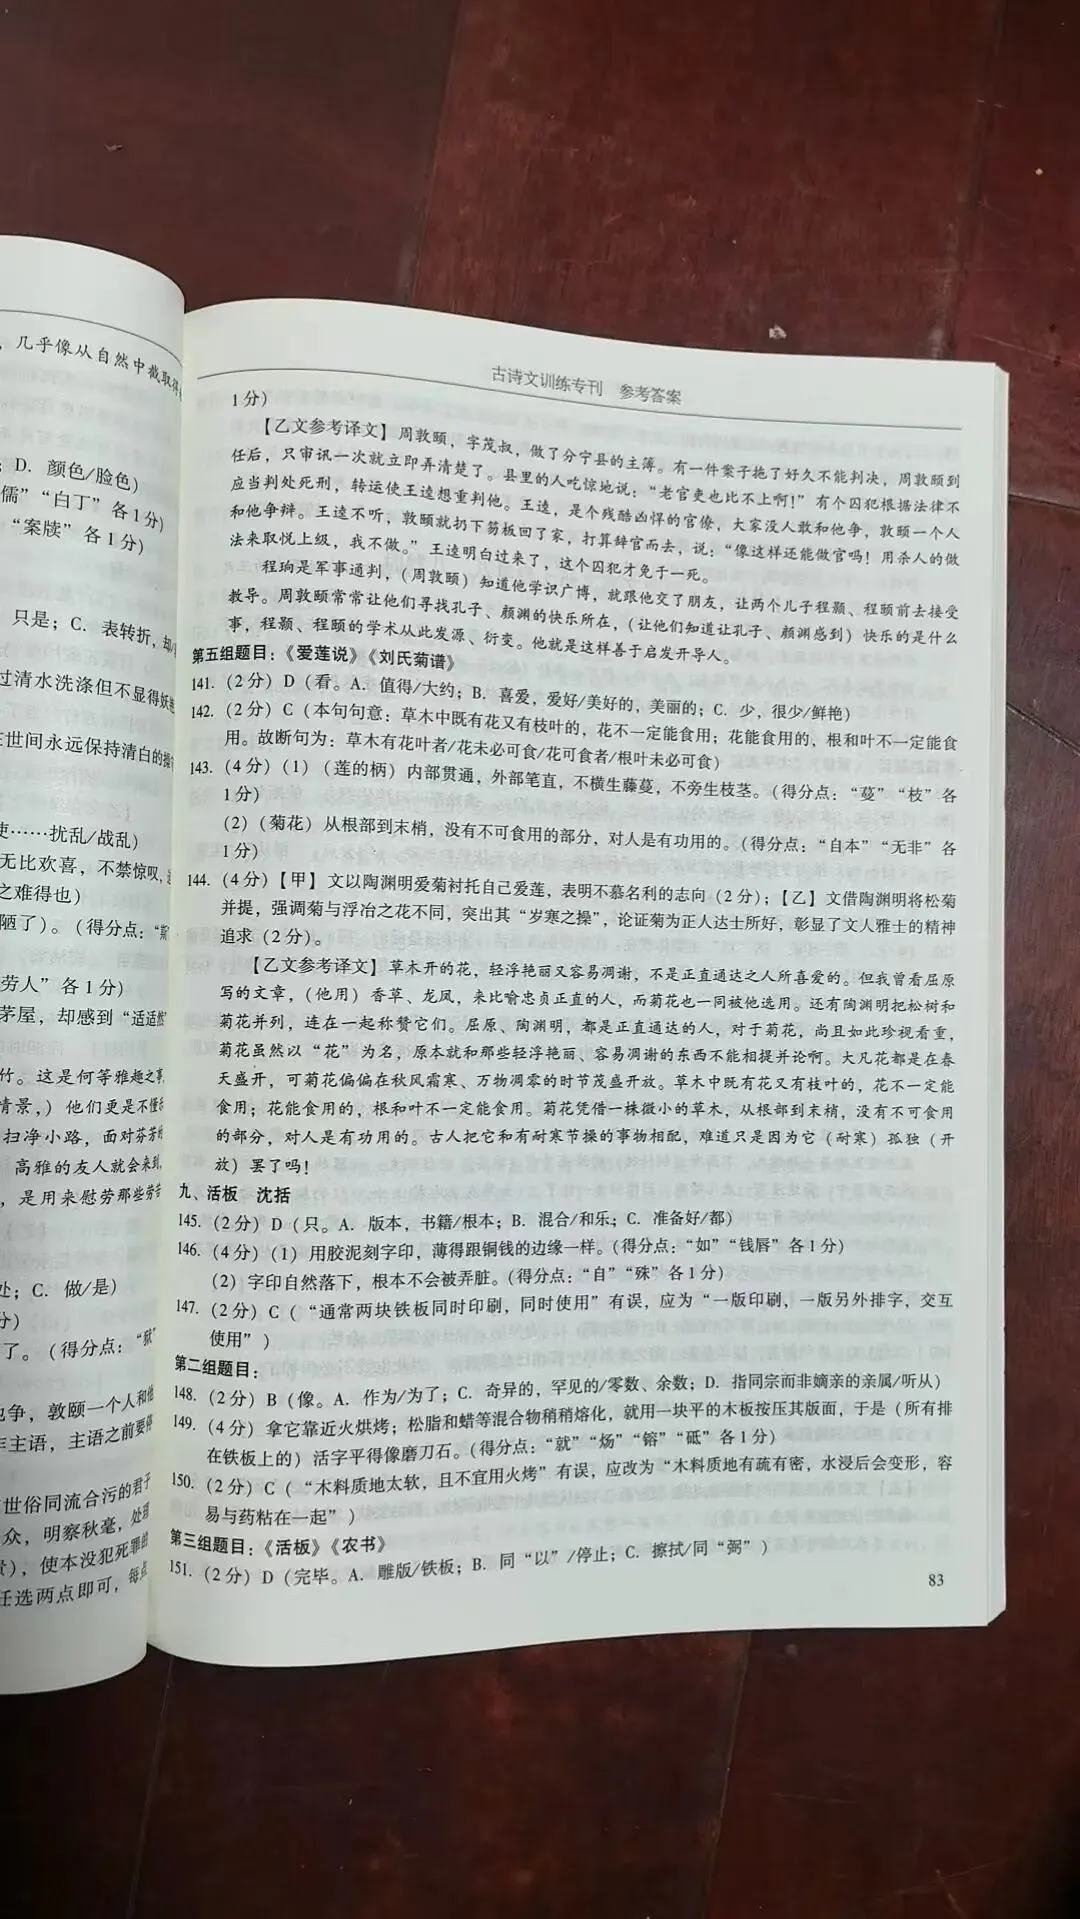 ，几乎像从自然中截取得
；D. 颜色/脸色）
儒”“白丁”各1分）
“案牍”各1分）
只是；C. 表转折，却/
过清水洗涤但不显得妖
在世间永远保持清白的操
使……扰乱/战乱）
无比欢喜，不禁惊叹，
之难得也）
陋了）。（得分点：“
劳人”各1分）
茅屋，却感到“适适然”
竹。这是何等雅趣之事
情景，）他们更是不懂
扫净小路，面对芬芳的
高雅的友人就会来到，
，是用来慰劳那些劳苦
处；C. 做/是）
分）
了。（得分点：“狱”
也争，敦颐一个人和他
作主语，主语之前要停
世俗同流合污的君子
众，明察秋毫，处理
，使本没犯死罪的
任选两点即可，每点
古诗文训练专刊 参考答案
1分）
【乙文参考译文】周敦颐，字茂叔，做了分宁县的主簿。有一件案子拖了好久不能判决，周敦颐到
任后，只审讯一次就立即弄清楚了。县里的人吃惊地说：“老官吏也比不上啊！”有个囚犯根据法律不
应当判处死刑，转运使王逵想重判他。王逵，是个残酷凶悍的官僚，大家没人敢和他争，敦颐一个人
和他争辩。王逵不听，敦颐就扔下笏板回了家，打算辞官而去，说：“像这样还能做官吗！用杀人的做
法来取悦上级，我不做。”王逵明白过来了，这个囚犯才免于一死。
程珦是军事通判，（周敦颐）知道他学识广博，就跟他交了朋友，让两个儿子程颢、程颐前去接受
教导。周敦颐常常让他们寻找孔子、颜渊的快乐所在，（让他们知道让孔子、颜渊感到）快乐的是什么
事，程颢、程颐的学术从此发源、衍变。他就是这样善于启发开导人。
第五组题目：《爱莲说》《刘氏菊谱》
141.（2分）D（看。A. 值得/大约；B. 喜爱，爱好/美好的，美丽的；C. 少，很少/鲜艳）
142.（2分）C（本句句意：草木中既有花又有枝叶的，花不一定能食用；花能食用的，根和叶不一定能食
用。故断句为：草木有花叶者/花未必可食/花可食者/根叶未必可食）
143.（4分）（1）（莲的柄）内部贯通，外部笔直，不横生藤蔓，不旁生枝茎。（得分点：“蔓”“枝”各
1分）
（2）（菊花）从根部到末梢，没有不可食用的部分，对人是有功用的。（得分点：“自本”“无非”各
1分）
144.（4分）【甲】文以陶渊明爱菊衬托自己爱莲，表明不慕名利的志向（2分）；【乙】文借陶渊明将松菊
并提，强调菊与浮冶之花不同，突出其“岁寒之操”，论证菊为正人达士所好，彰显了文人雅士的精神
追求（2分）。
【乙文参考译文】草木开的花，轻浮艳丽又容易凋谢，不是正直通达之人所喜爱的。但我曾看屈原
写的文章，（他用）香草、龙凤，来比喻忠贞正直的人，而菊花也一同被他选用。还有陶渊明把松树和
菊花并列，连在一起称赞它们。屈原、陶渊明，都是正直通达的人，对于菊花，尚且如此珍视看重，
菊花虽然以“花”为名，原本就和那些轻浮艳丽、容易凋谢的东西不能相提并论啊。大凡花都是在春
天盛开，可菊花偏偏在秋风霜寒、万物凋零的时节茂盛开放。草木中既有花又有枝叶的，花不一定能
食用；花能食用的，根和叶不一定能食用。菊花凭借一株微小的草木，从根部到末梢，没有不可食用
的部分，对人是有功用的。古人把它和有耐寒节操的事物相配，难道只是因为它（耐寒）孤独（开
放）罢了吗！
九、活板 沈括
145.（2分）D（只。A. 版本，书籍/根本；B. 混合/和乐；C. 准备好/都）
146.（4分）（1）用胶泥刻字印，薄得跟铜钱的边缘一样。（得分点：“如”“钱唇”各1分）
（2）字印自然落下，根本不会被弄脏。（得分点：“自”“殊”各1分）
147.（2分）C（“通常两块铁板同时印刷，同时使用”有误，应为“一版印刷，一版另外排字，交互
使用”）
第二组题目：
148.（2分）B（像。A. 作为/为了；C. 奇异的，罕见的/零数、余数；D. 指同宗而非嫡亲的亲属/听从）
149.（4分）拿它靠近火烘烤；松脂和蜡等混合物稍稍熔化，就用一块平的木板按压其版面，于是（所有排
在铁板上的）活字平得像磨刀石。（得分点：“就”“炀”“镕”“砥”各1分）
150.（2分）C（“木料质地太软，且不宜用火烤”有误，应改为“木料质地有疏有密，水浸后会变形，容
易与药粘在一起”）
第三组题目：《活板》《农书》
151.（2分）D（完毕。A. 雕版/铁板；B. 同“以”/停止；C. 擦拭/同“弼”）
83